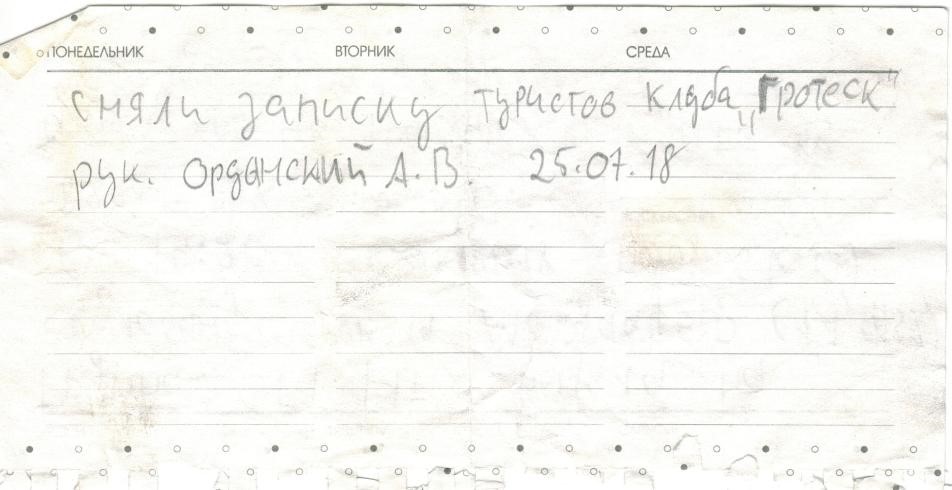 ПОНЕДЕЛЬНИК ВТОРНИК СРЕДА
Сняли записку туристов клуба „Гротеск"
рук. Ордынский А.В. 25.07.18